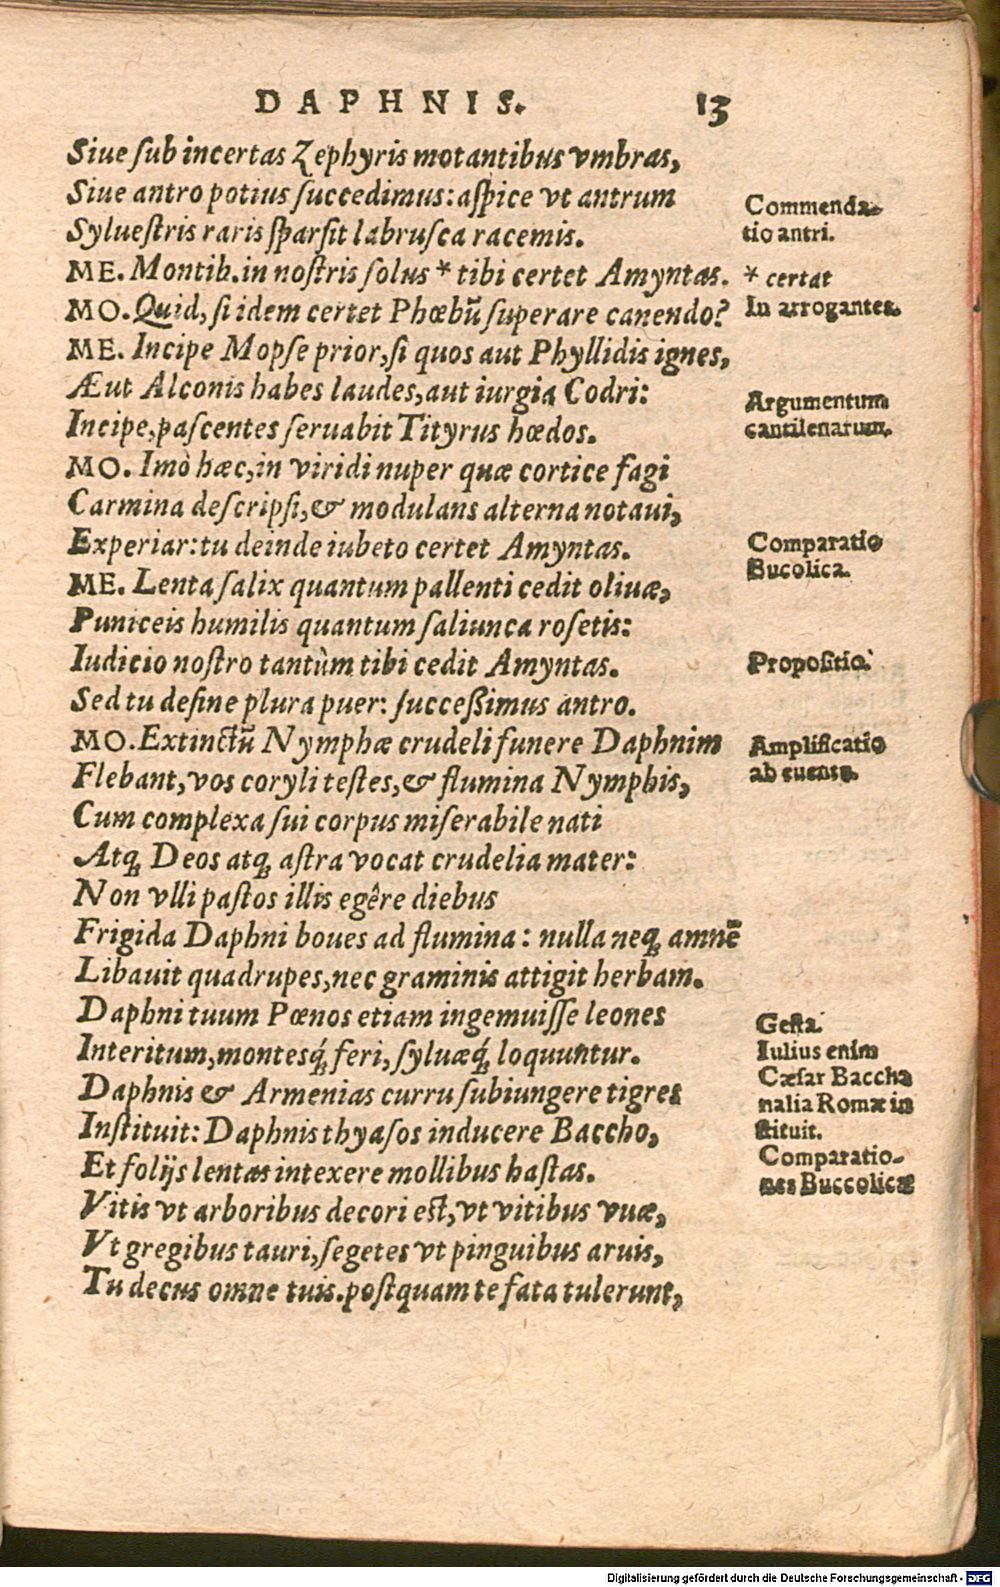 DAPHNIS. 13
Siue ſub incertas Zephyris motantibus vmbras,
Siue antro potius ſuccedimus: aſpice vt antrum
Sylueſtris raris ſparſit labruſca racemis.
Commenda-
tio antri.
ME. Montib. in noſtris ſolus * tibi certet Amyntas.
* certat
MO. Quid, ſi idem certet Phœbũ ſuperare canendo?
In arrogantes.
ME. Incipe Mopſe prior, ſi quos aut Phyllidis ignes,
Æut Alconis habes laudes, aut iurgia Codri:
Incipe, paſcentes ſeruabit Tityrus hœdos.
Argumentum
cantilenarum.
MO. Imò hæc, in viridi nuper quæ cortice fagi
Carmina deſcripſi, & modulans alterna notaui,
Experiar: tu deinde iubeto certet Amyntas.
Comparatio
Bucolica.
ME. Lenta ſalix quantum pallenti cedit oliuæ,
Puniceis humilis quantum ſaliunca roſetis:
Iudicio noſtro tantùm tibi cedit Amyntas.
Propoſitio.
Sed tu deſine plura puer: ſucceßimus antro.
MO. Extinctũ Nymphæ crudeli funere Daphnim
Flebant, vos coryli teſtes, & flumina Nymphis,
Amplificatio
ab euentu.
Cum complexa ſui corpus miſerabile nati
Atq; Deos atq; aſtra vocat crudelia mater:
Non vlli paſtos illis egêre diebus
Frigida Daphni boues ad flumina: nulla neq; amnẽ
Libauit quadrupes, nec graminis attigit herbam.
Daphni tuum Pœnos etiam ingemuiſſe leones
Interitum, montesq́; feri, ſyluæq́; loquuntur.
Daphnis & Armenias curru ſubiungere tigres
Inſtituit: Daphnis thyaſos inducere Baccho,
Et folijs lentas intexere mollibus haſtas.
Geſta.
Iulius enim
Cæſar Baccha
nalia Romæ in
ſtituit.
Comparatio-
nes Buccolicæ
Vitis vt arboribus decori eſt, vt vitibus vuæ,
Vt gregibus tauri, ſegetes vt pinguibus aruis,
Tu decus omne tuis. poſtquam te fata tulerunt,
Digitalisierung gefördert durch die Deutsche Forschungsgemeinschaft - DFG